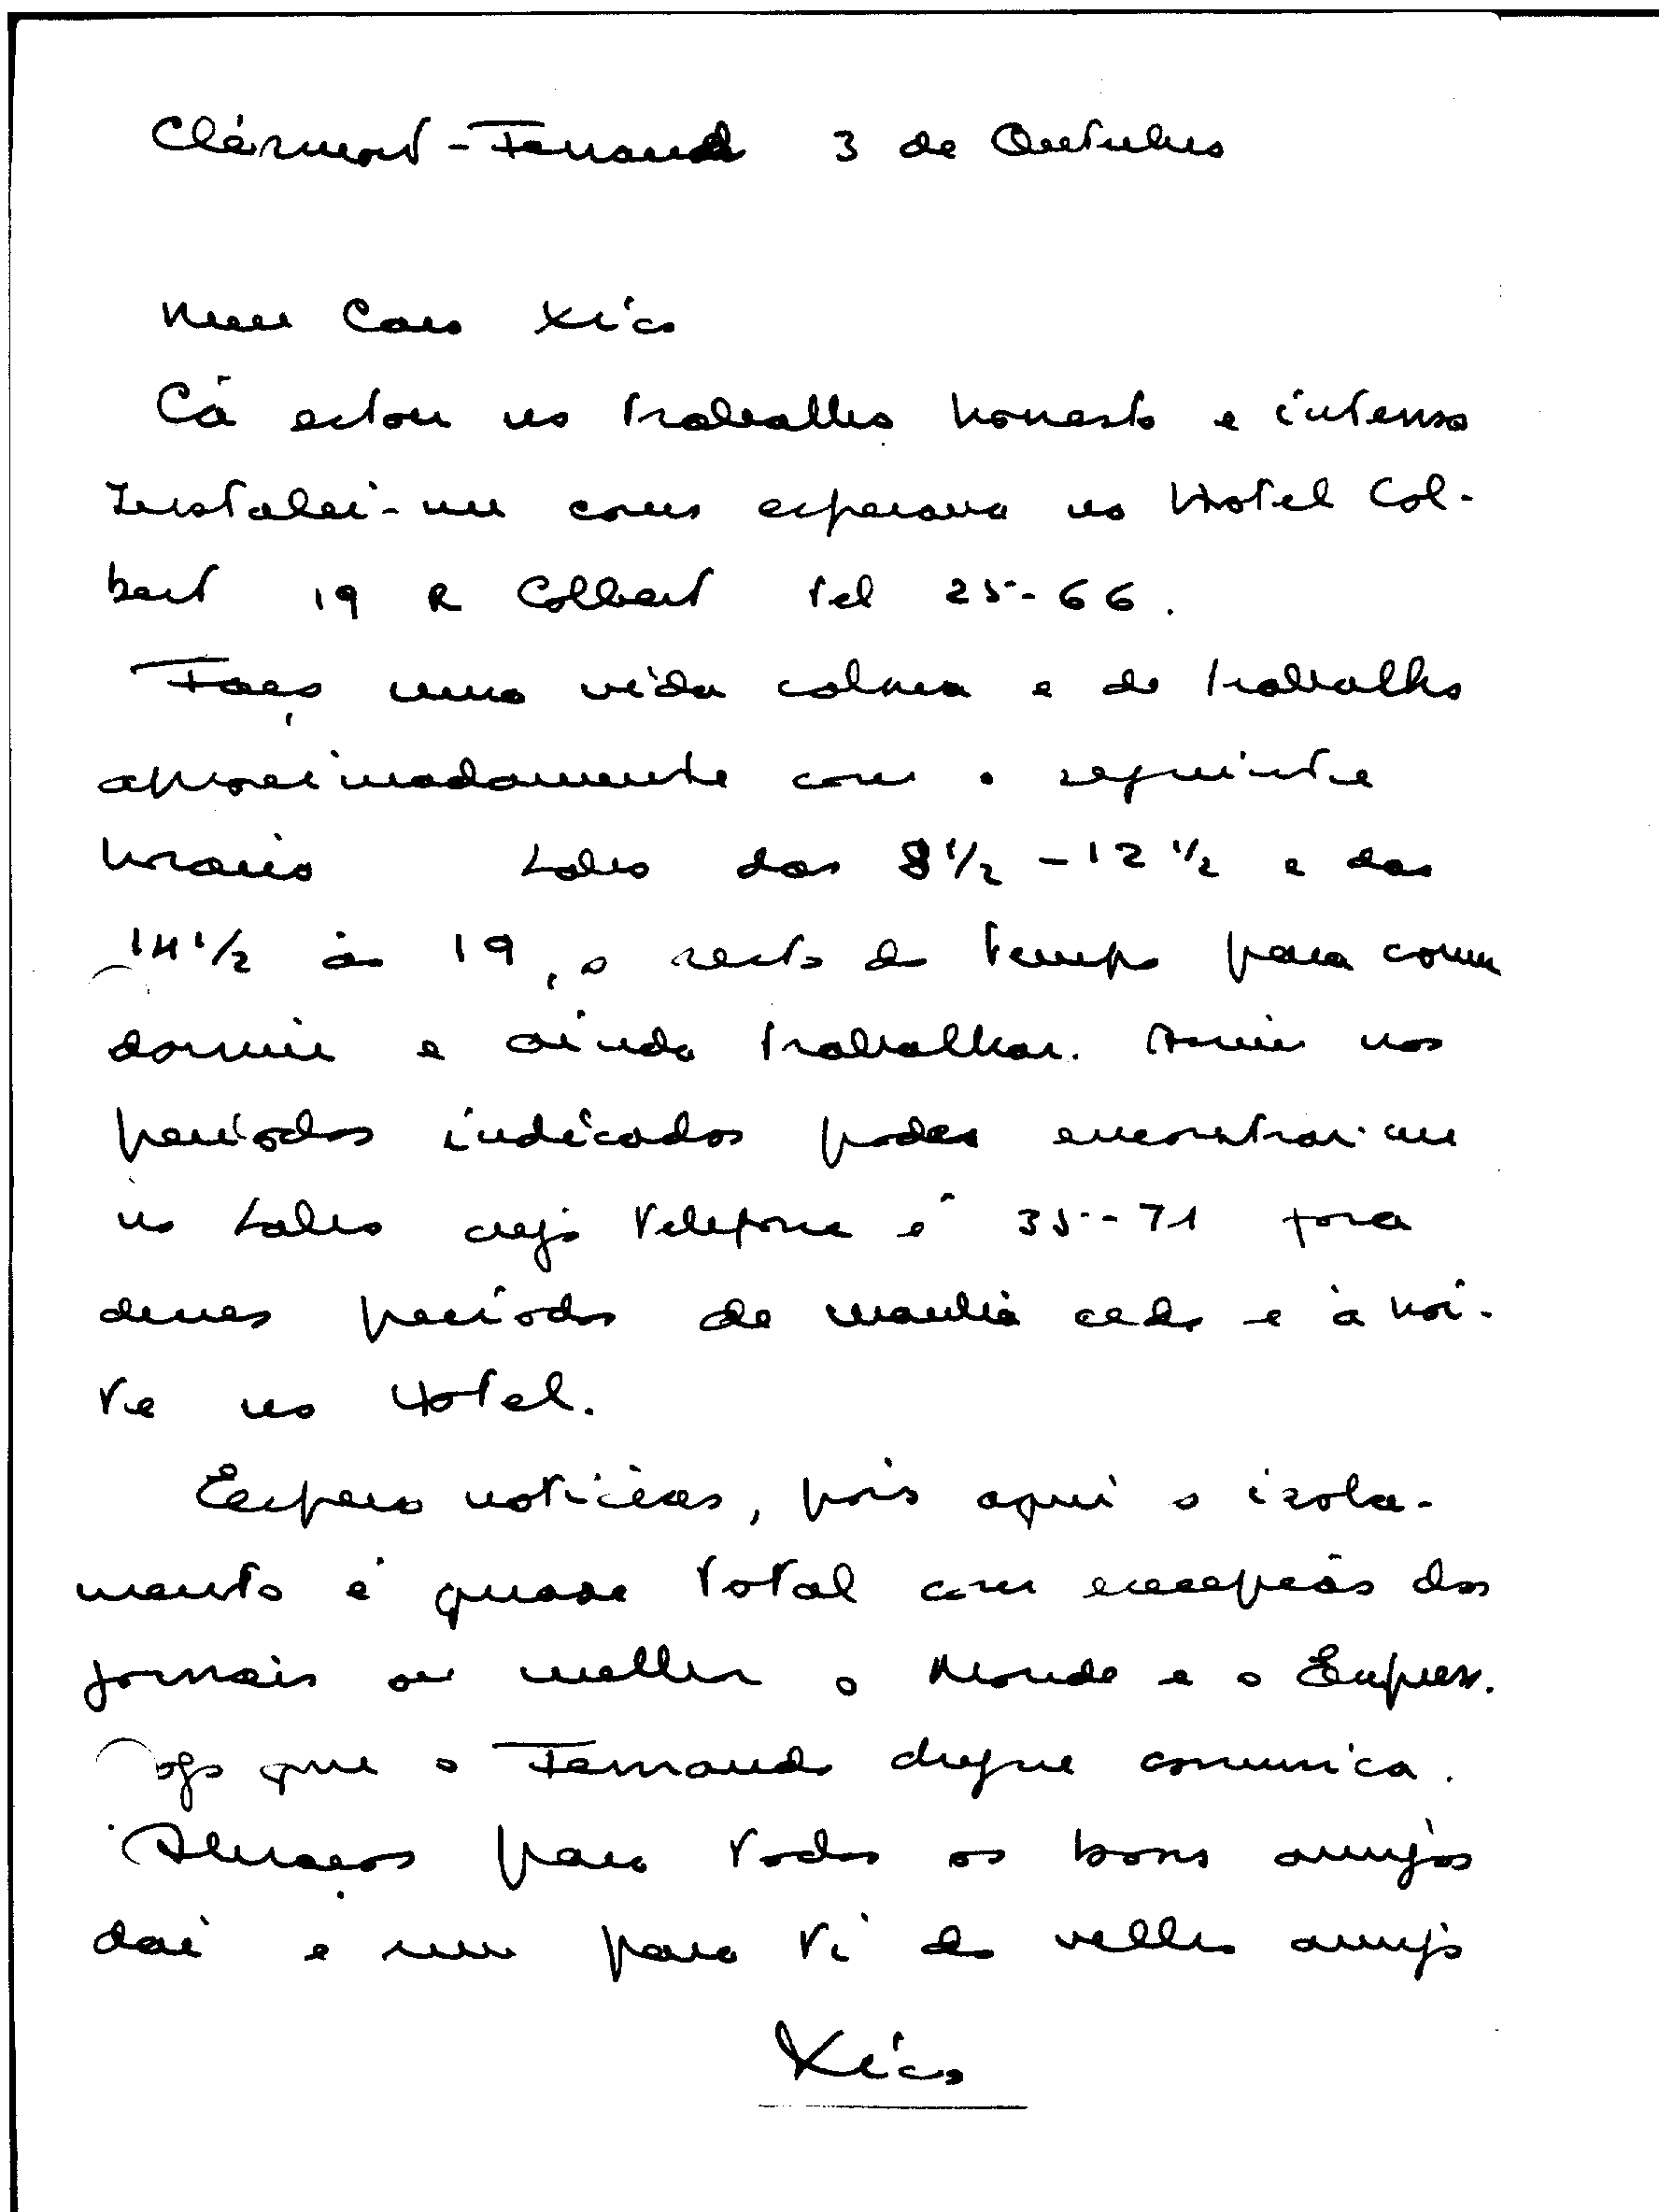 Clérmont-Ferrand 3 de Outubro
Meu Caro Xico
Cá estou no trabalho honesto e intenso
Instalei-me como esperava no Hotel Col-
bert 19 R Colbert tel 25-66.
Faço uma vida calma e de trabalho
aproximadamente com o seguinte
horário Labo das 8 1/2 - 12 1/2 e das
14 1/2 às 19, o resto do tempo para comer
dormir e ainda trabalhar. Assim nos
períodos indicados podes encontrar-me
no Labo cujo telefone é 35-71 fora
desses períodos de manhã cedo e à noi-
te no Hotel.
Espero notícias, pois aqui o isola-
mento é quase total com excepção dos
jornais ou melhor o Monde e o Express.
Logo que o Fernando chegue comunica.
Abraços para todos os bons amigos
daí e um para ti do velho amigo
Xico